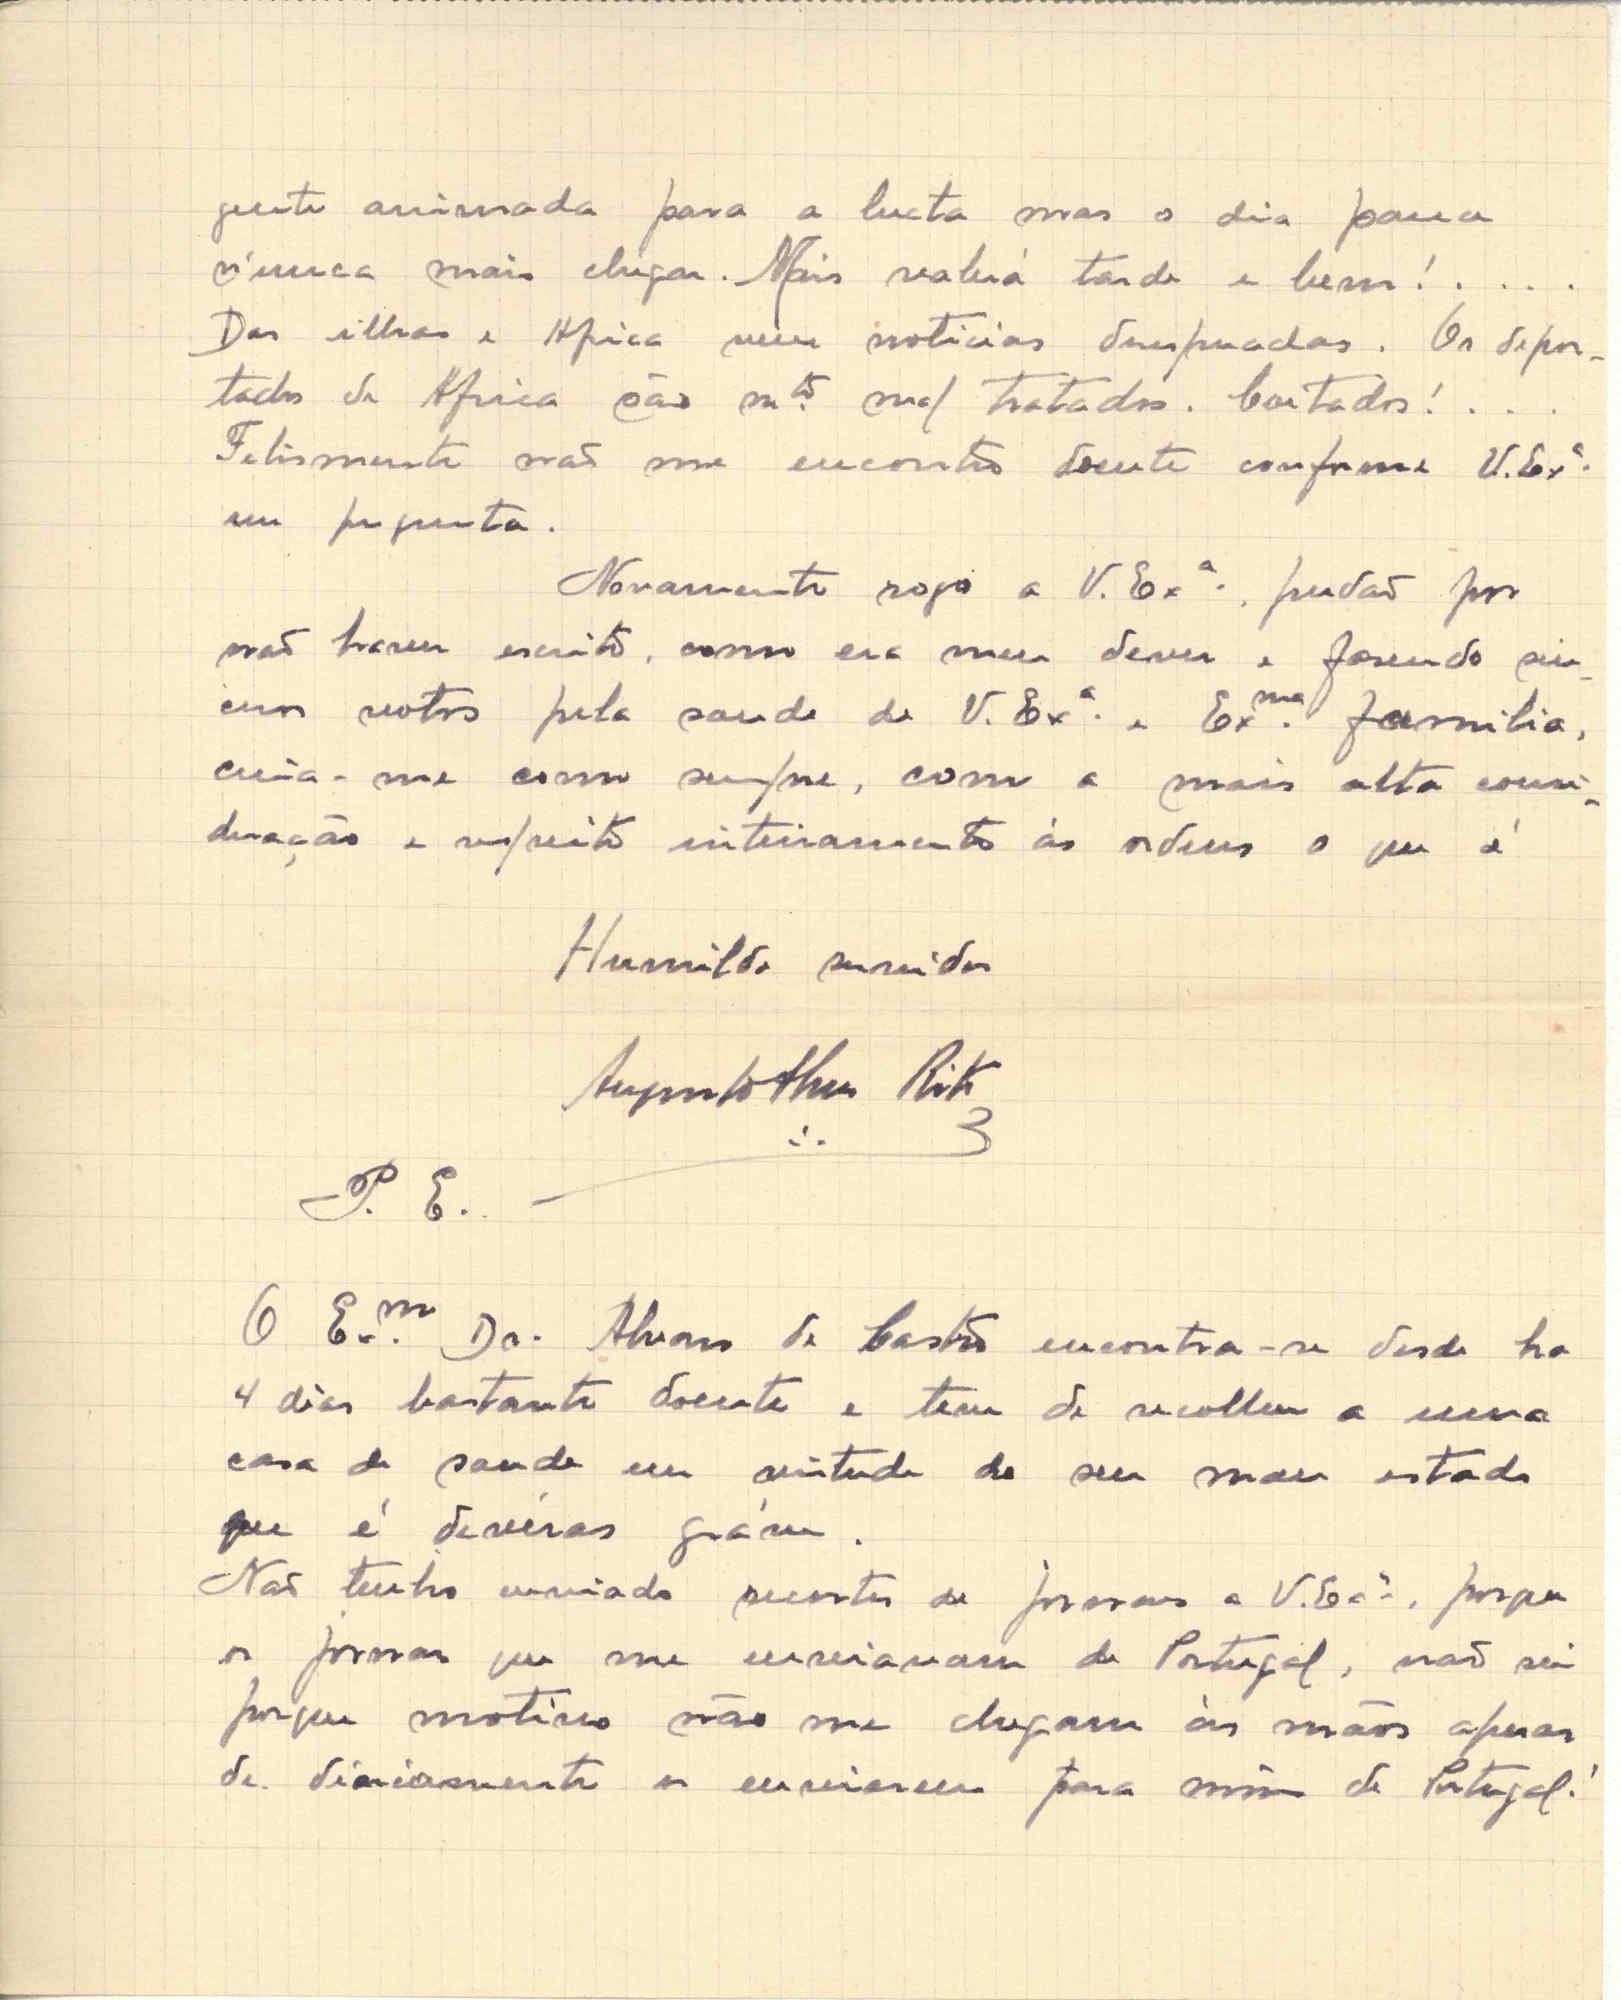 gente animada para a lucta mas o dia parece
nunca mais chegar. Mais valerá tarde e bem!....
Das ilhas e Africa veem noticias desesperadas. Os depor-
tados de Africa são mtº mal tratados. Coitados!....
Felismente não me encontro doente conforme V. Exª.
me pregunta.
Novamente rogo a V. Exª. perdão por
não haver escrito, como era meu dever e fasendo sin-
ceros votos pela saude de V. Exª. e Exma. familia,
creia-me como sempre, com a mais alta consi-
deração e respeito inteiramente ás ordens o que é
Humilde servidor
Augusto
P. E.
O Exm. Dr. Alvaro de Castro encontra-se desde ha
4 dias bastante doente e teve de recolher a uma
casa de saude em virtude do seu mau estado
que é devéras gráve.
Não tenho enviado recortes de jornaes a V. Exª., porque
os jornaes que me enviavam de Portugal, não sei
porque motivo não me chegam ás mãos apesar
de diariamente os enviarem para mim de Portugal!